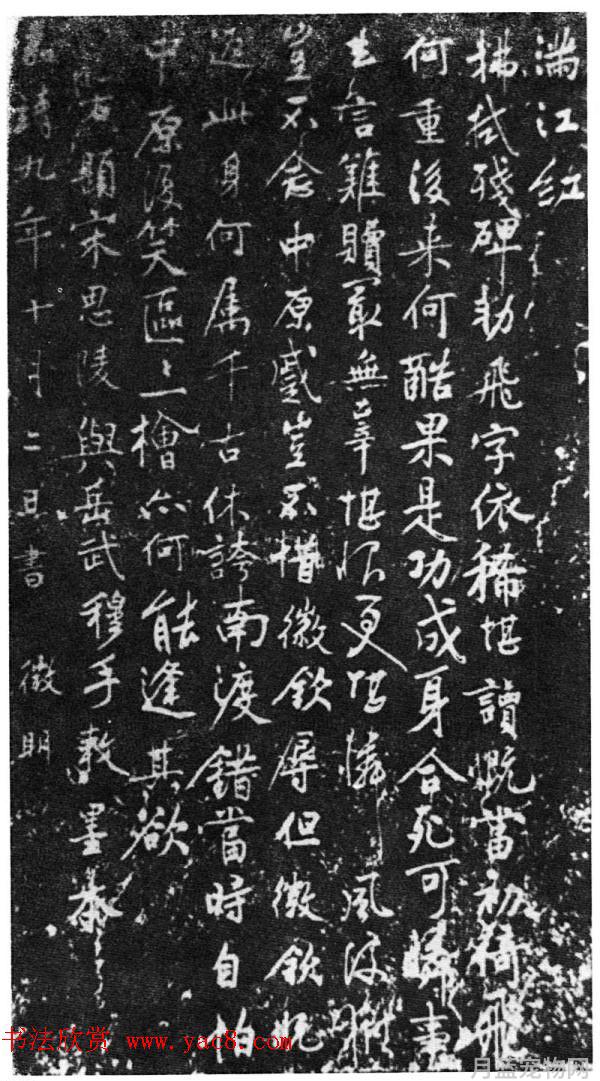 滿江紅
拂拭殘碑勅飛字依稀堪讀慨當初倚飛
何重後来何酷果是功成身合死可憐事
去言難贖最無辜堪恨更堪憐風波獄
豈不念中原蹙豈不惜徽欽辱但徽欽既
返此身何属千古休誇南渡錯當時自怕
中原復笑區〻一檜亦何能逢其欲
右題宋思陵與岳武穆手敕墨本
嘉靖九年十月二日書 徵明
书法欣赏 www.yac8.com
月蓝宠物网